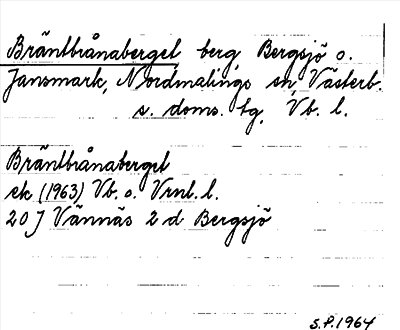 Bräntbrånaberget berg Bergsjö o.
Jansmark, Nordmalings sn, Västerb.
s. doms. tg, Vb. l.
Bräntbrånaberget
ek (1963) Vb. o. Vrnl. l.
20 J Vännäs 2 d Bergsjö
S.P. 1964